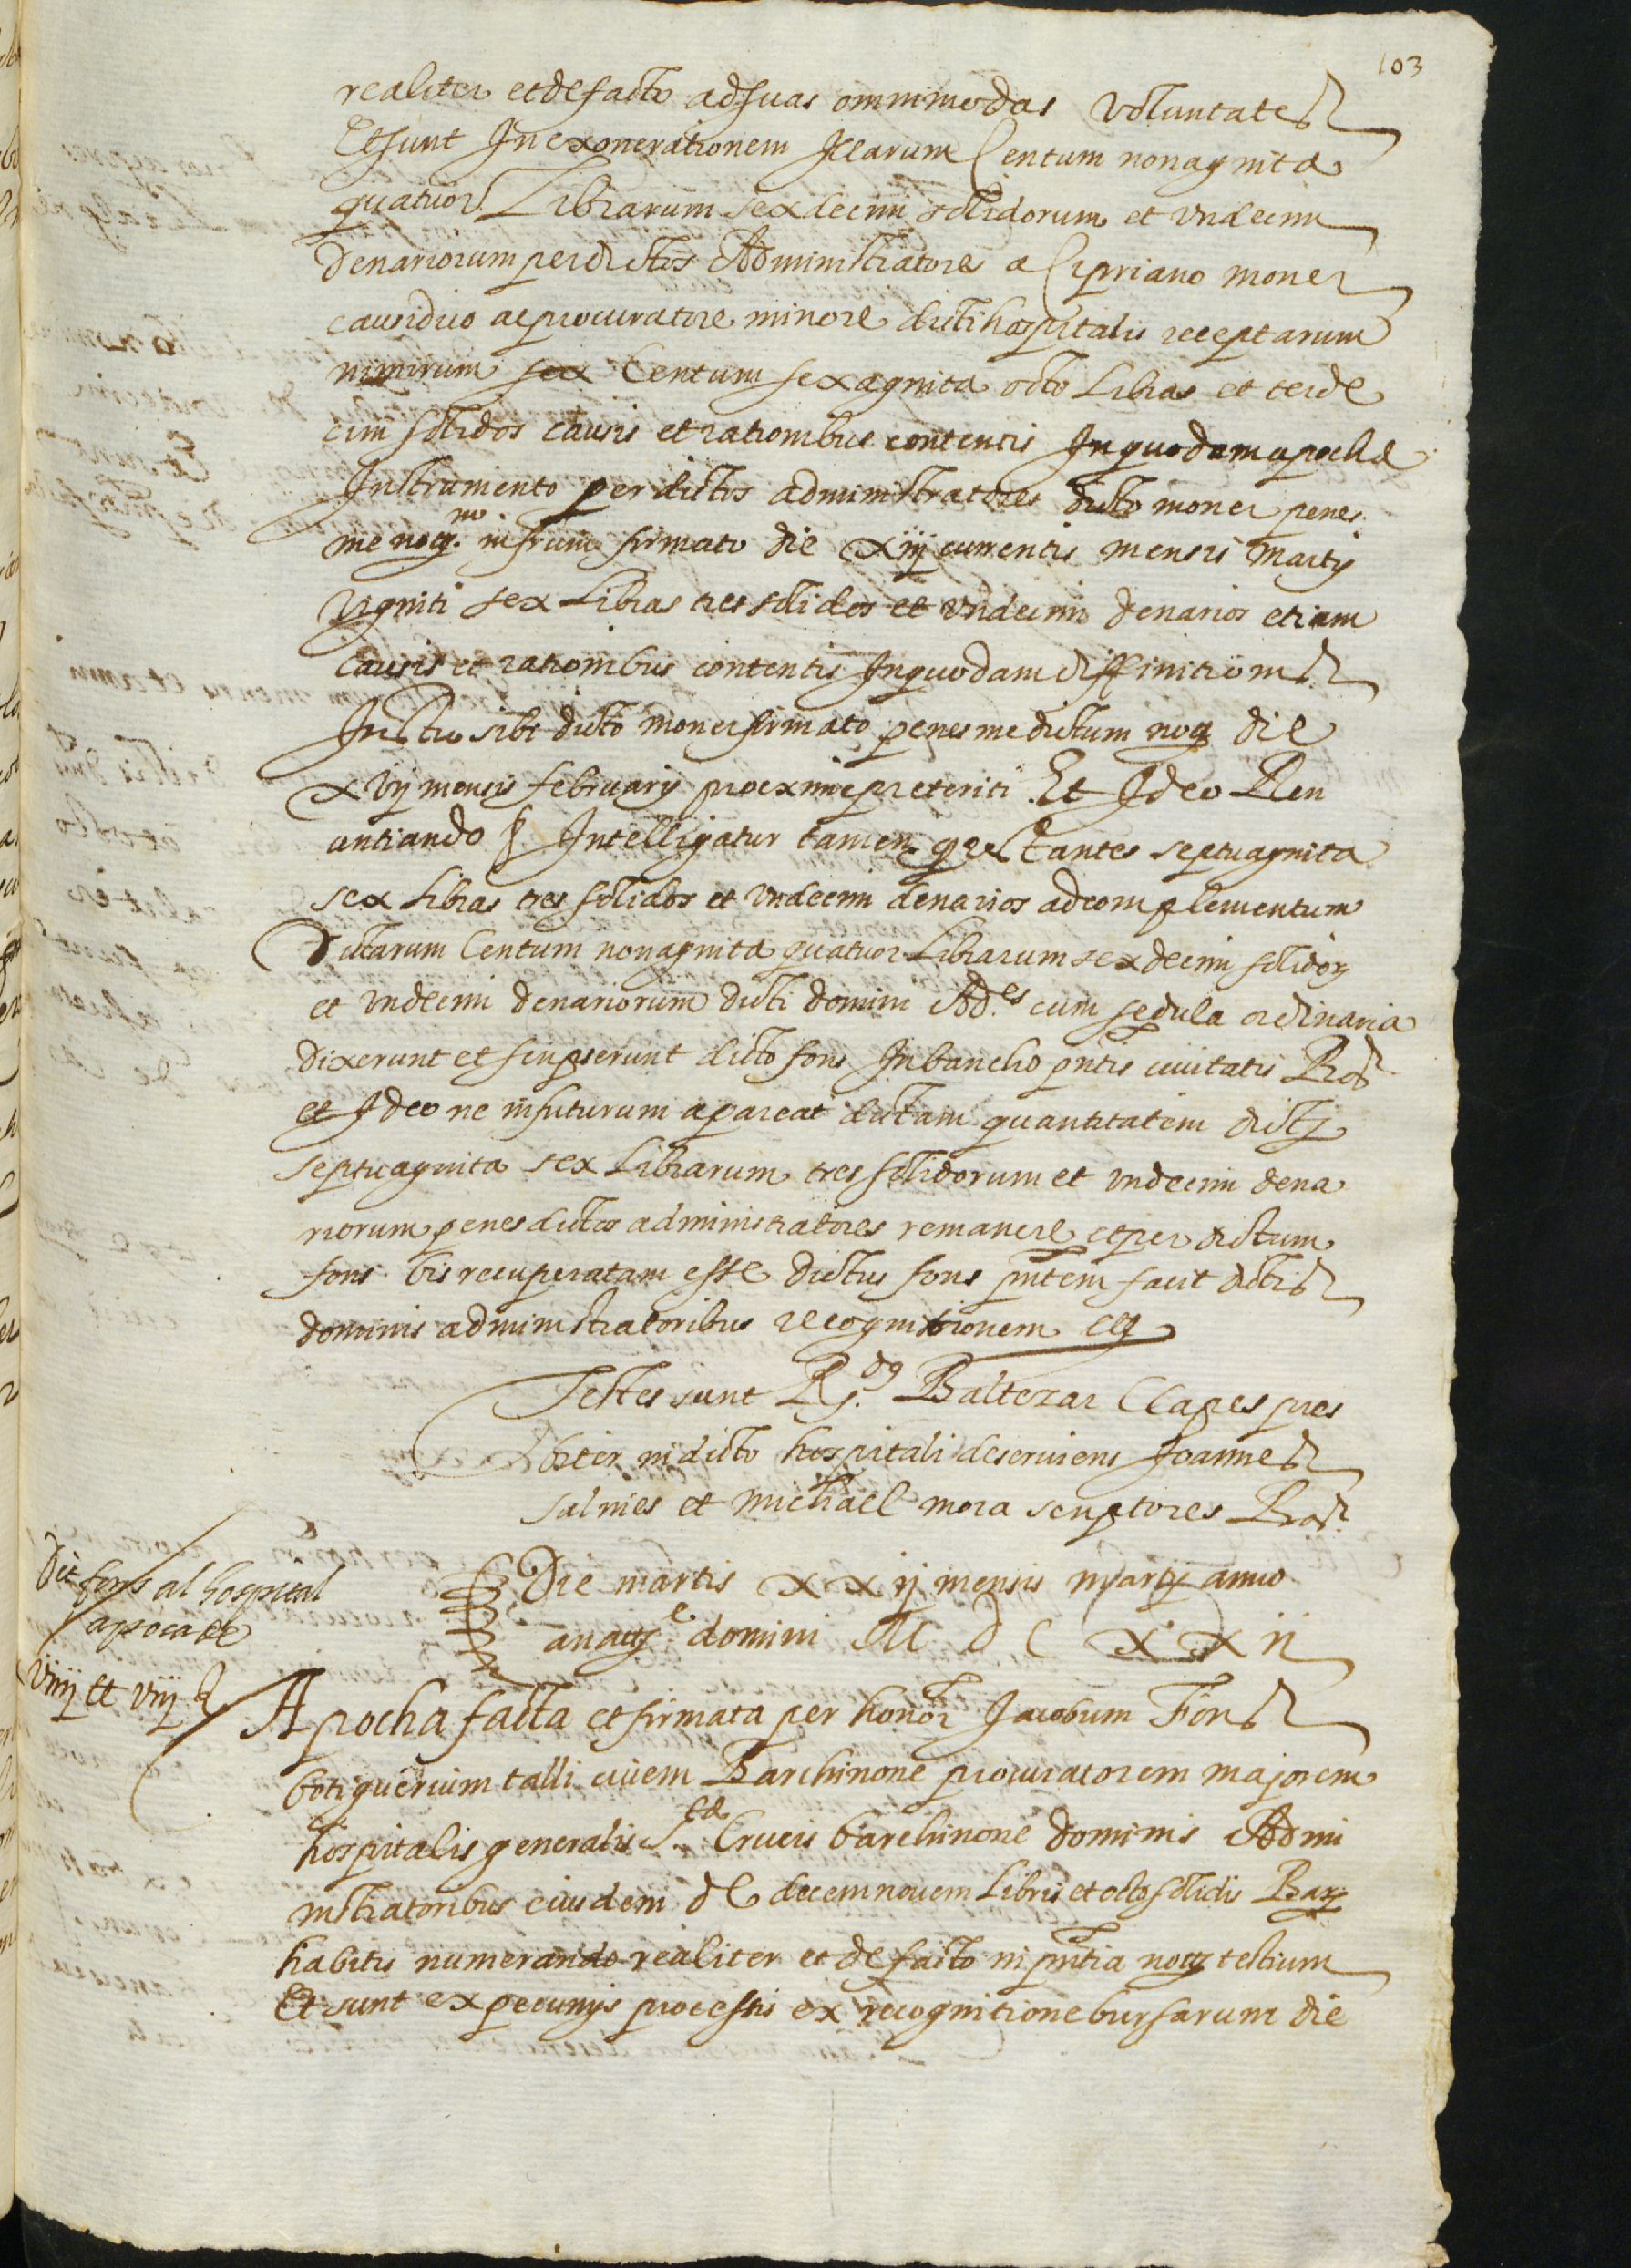 103
realiter et de facto ad suas omnimodas voluntates
Et sunt In exonerationem Illarum Centum nonaginta
quatuor Librarum sexdecim solidorum et undecim
denariorum per dictos Administratores a Cipriano moner
causidico ac procuratore minore dicti hospitalis receptarum
nimirum sex Centum sexaginta octo Libras et terde
cim solidos causis et rationibus contentis In quodam apocha
Instrumento per dictos administratores dicto moner penes
me nots. infrum firmato die xiiij currentis mensis martij
viginti sex Libras tres solidos et undecim denarios etiam
causis et rationibus contentis In quodam diffinitionis
Instro sibi dicto moner firmato penes me dictum not die
xvij mensis februarij proxime preteriti. Et Ideo Ren
untiando & Intelligatur tamen restantes septuaginta
sex Libras tres solidos et undecim denarios ad complementum
dictarum Centum nonaginta quatuor Librarum sexdecim solidor
et undecim denariorum dicti domini Ad.es cum sedula ordinaria
dixerunt et scripserunt dicto fons In bancho pntis civitatis Bar
et Ideo ne in futurum apareat dictam quantitatem dictis
septuaginta sex Librarum tres solidorum et undecim dena
riorum penes dictos administratores remanere et per dictum
fons bis recuperatam esse dictus fons pntem facit dictis
dominis administratoribus recognitionem etc
Testes sunt Rs. dus Baltezar Clapes pres
biter in dicto hospitali deserviens Joannes
salmes et michael mora scriptores Bar.
Die martis xxij mensis martij anno
a natte domini M D C XXii
Dit fons al hospital
apoca de
viiij et viij
Apocha facta et firmata per honor Jacobum Fons
botiguerium talli civem Barchinone procuratorem majorem
hospitalis generalis S.te Crucis barchinone dominis Admi
nistratoribus eiusdem de decem novem Libris et octo solidis Bar
habitis numerando realiter et de facto in pntia not testium
Et sunt ex pecunijs processis ex recognitione bursarum die